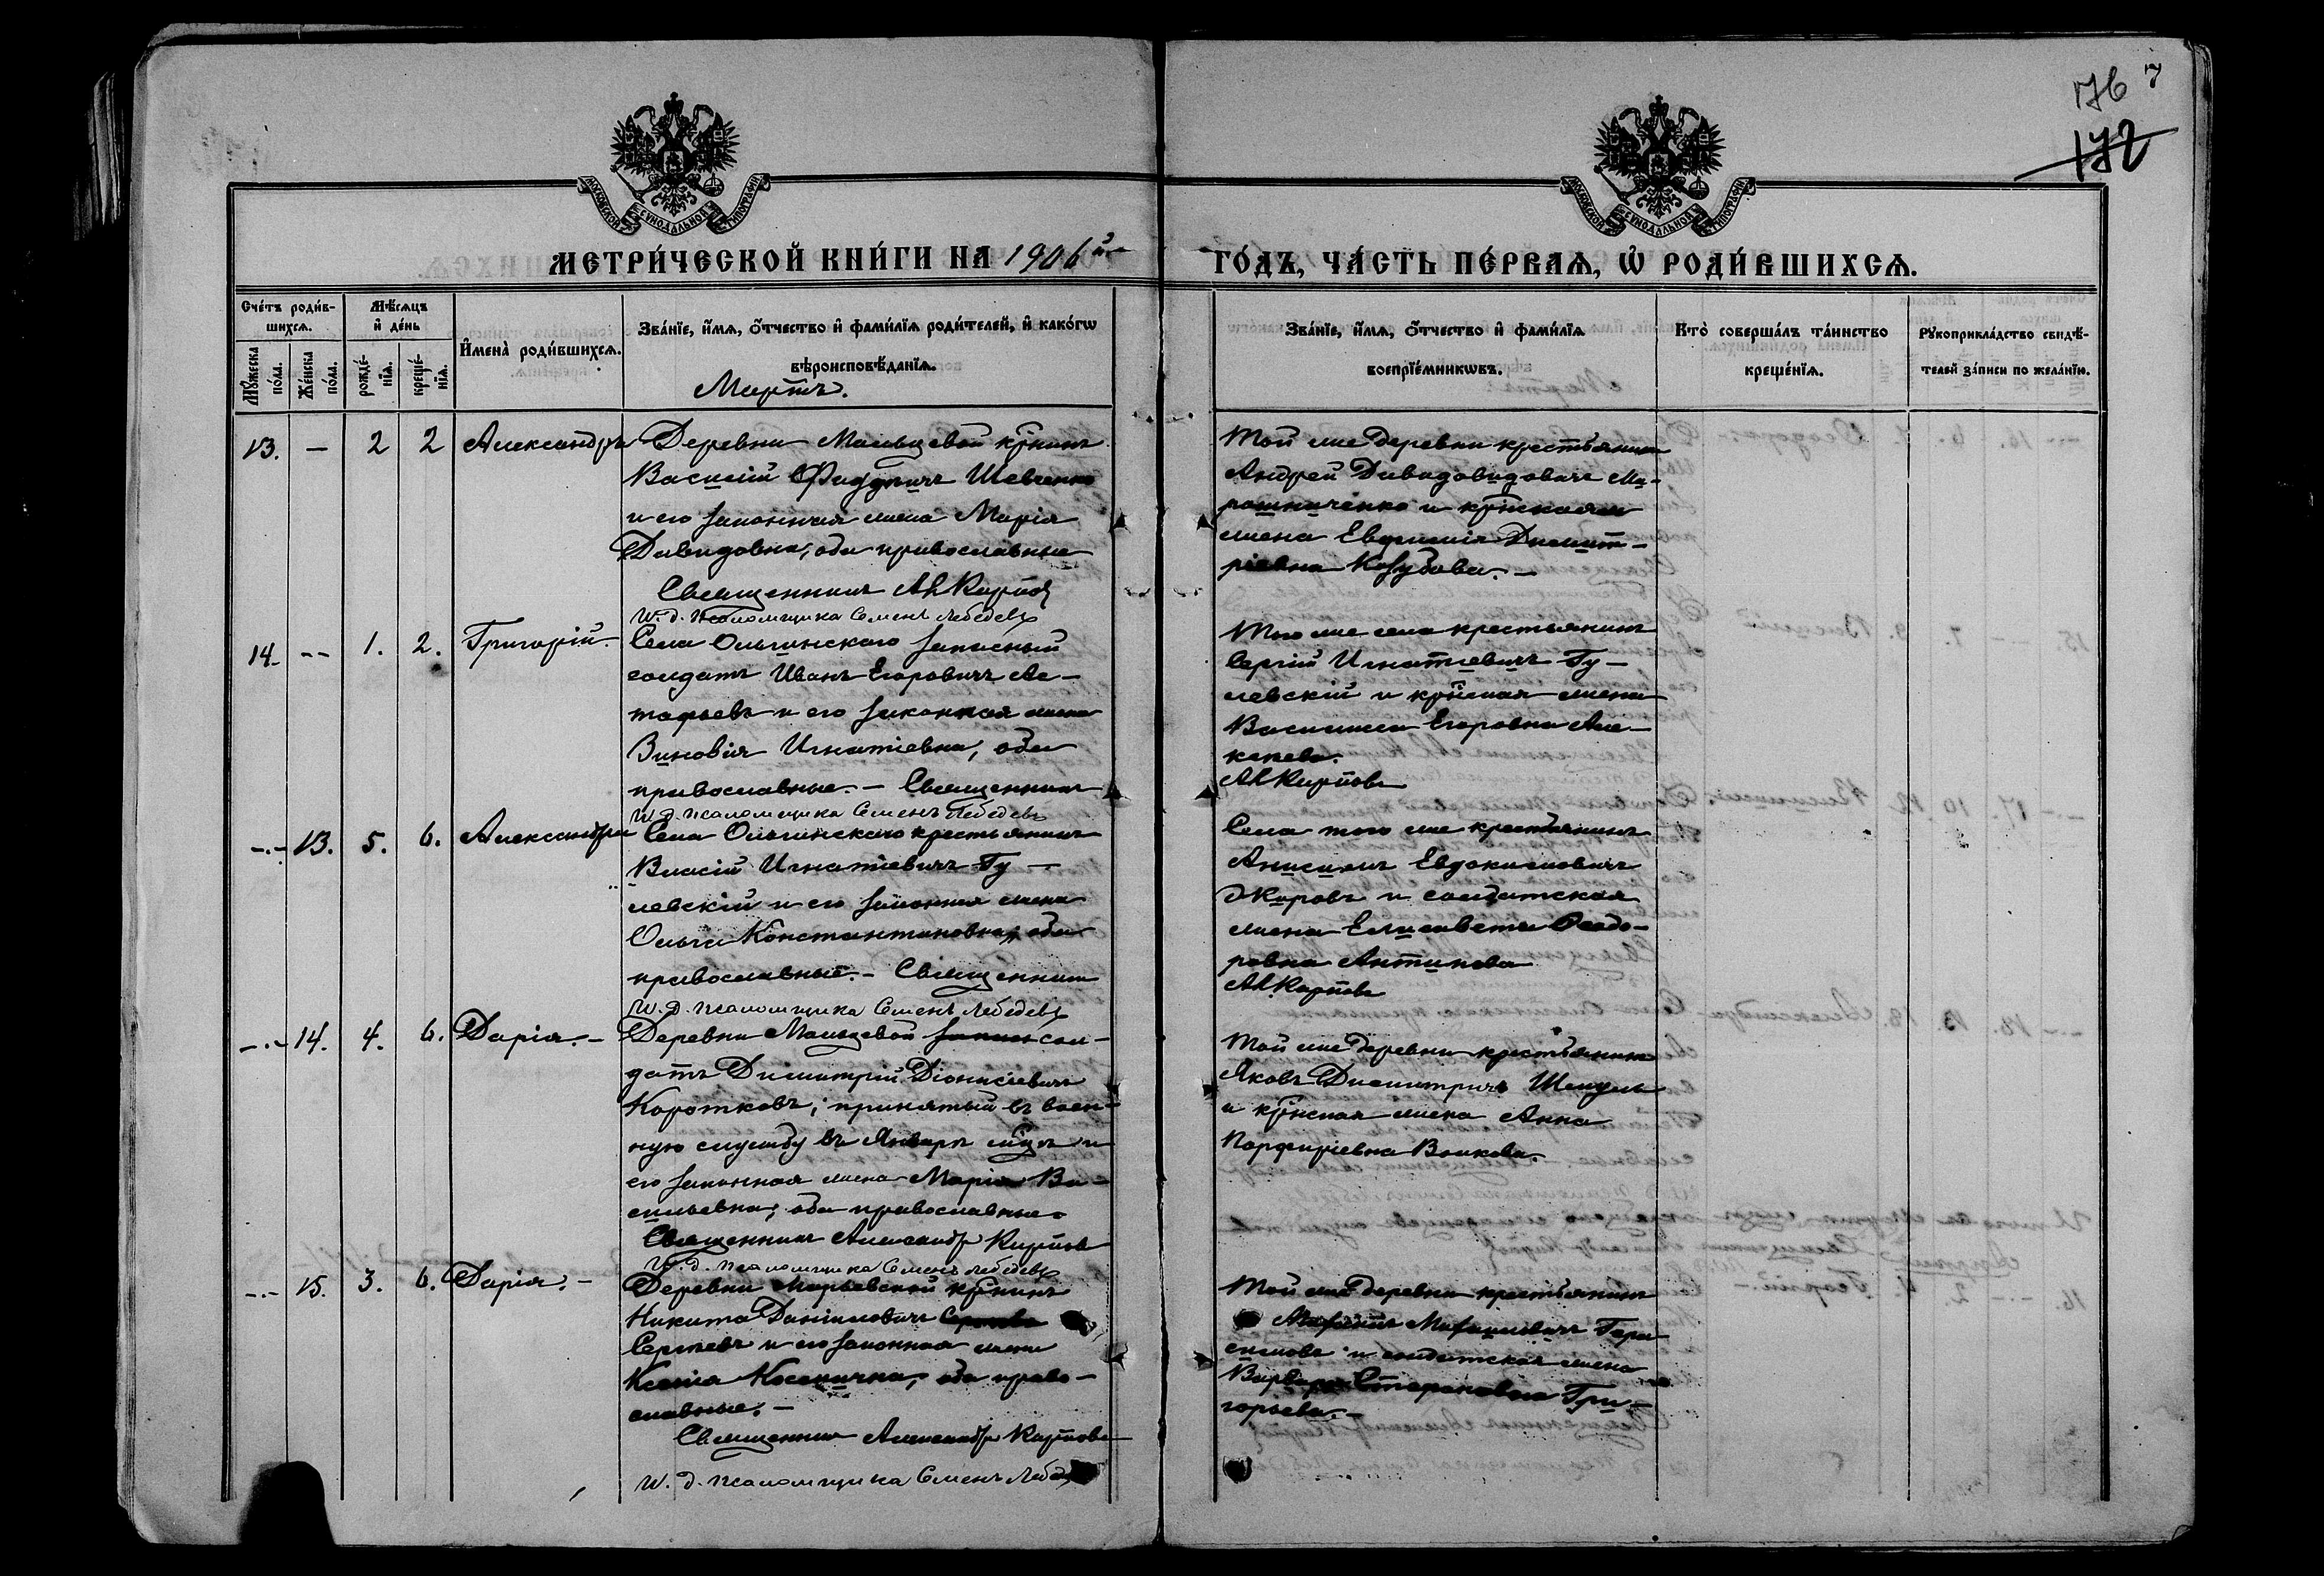 176 7
172
МОСКОВСКОЙ СѴНОДАЛЬНОЙ ТИПОГРАФІИ
МОСКОВСКОЙ СѴНОДАЛЬНОЙ ТИПОГРАФІИ
МЕТРИ́ЧЕСКОЙ КНИ́ГИ НА 1906й
ГО́ДЪ, ЧА́СТЬ ПЕ́РВАѦ, Ѡ҆ РОДИ́ВШИХСѦ.
Сче́тъ роди́в-
шихсѧ.
Мѣ́сѧцъ
и҆ де́нь
Мꙋ́жеска
по́ла.
Же́нска
по́ла.
рожде́-
нїѧ.
креще́-
нїѧ.
И҆мена̀ роди́вшихсѧ.
Зва́нїе, и҆́мѧ, ѻ҆́тчество и҆ фами́лїѧ роди́телей, и҆ како́гѡ
вѣроисповѣ́данїѧ.
Зва́нїе, и҆́мѧ, ѻ҆́тчество и҆ фами́лїѧ
воспрїе́мникѡвъ.
Кто̀ соверша́лъ та́инство
креще́нїѧ.
Рꙋкоприкла́дство свидѣ́-
телей за́писи по жела́нїю.
Мартъ.
13. — 2 2 Александръ Деревни Мальцевой кр̃нинъ
Василій Фаддѣичъ Шевченко
и его законная жена Марія
Давидовна, оба православные
Священникъ Ал Карпов
И. д. псаломщика Семенъ Лебедевъ
Той же деревни крестьянинъ
Андрей Давидовидовичъ Ми-
рошниченко и кр̃нская
жена Евфимія Димит-
ріевна Козубова. —
14. -- 1. 2. Григорій. Села Ольгинскаго запасный
солдатъ Иванъ Егоровичъ Ас-
тафьевъ и его законная жена
Зиновія Игнатіевна, оба
православные. — Священникъ
И. д. псаломщика Семенъ Лебедевъ
Того же села крестьянинъ
Сергій Игнатіевичъ Гу-
левскій и кр̃нская жена
Василиса Егоровна
Ал Карповъ
-.- 13. 5. 6. Александра Села Ольгинскаго крестьянинъ
Власій Игнатіевичъ Гу —
левскій и его законная жена
Ольга Константиновна, оба
православные. — Священникъ
И. д. псаломщика Семенъ Лебедевъ
Села того же крестьянинъ
Анисимъ Евдокимовичъ
и солдатская
жена Елисавета Ѳеодо-
ровна Антипова
Ал. Карповъ
-.- 14. 4. 6. Дарія. — Деревни Мальцевой сол-
датъ Димитрій Діонисіевичъ
Коротковъ, принятый въ воен-
ную службу въ Январѣ мц̃ѣ и
его законная жена Марія Ва-
сильевна, оба православные.
Священникъ Александр Карпов
И. д. псаломщика Семенъ Лебедевъ
Той же деревни крестьянинъ
Яковъ Димитричъ
и кр̃нская жена Анна
Порфиріевна Волкова.
-.- 15. 3. 6. Дарія. — Деревни Марьевской кр̃нинъ
Никита Даниловичъ
Сергѣевъ и его законная жена
Ксенія оба право-
славные. —
Священник Александр Карпов
И. д. псаломщика Семенъ Лебед
Той же деревни крестьянинъ
Гера-
симовъ и солдатская жена
Варвара Стефановна Гри-
горьева. —